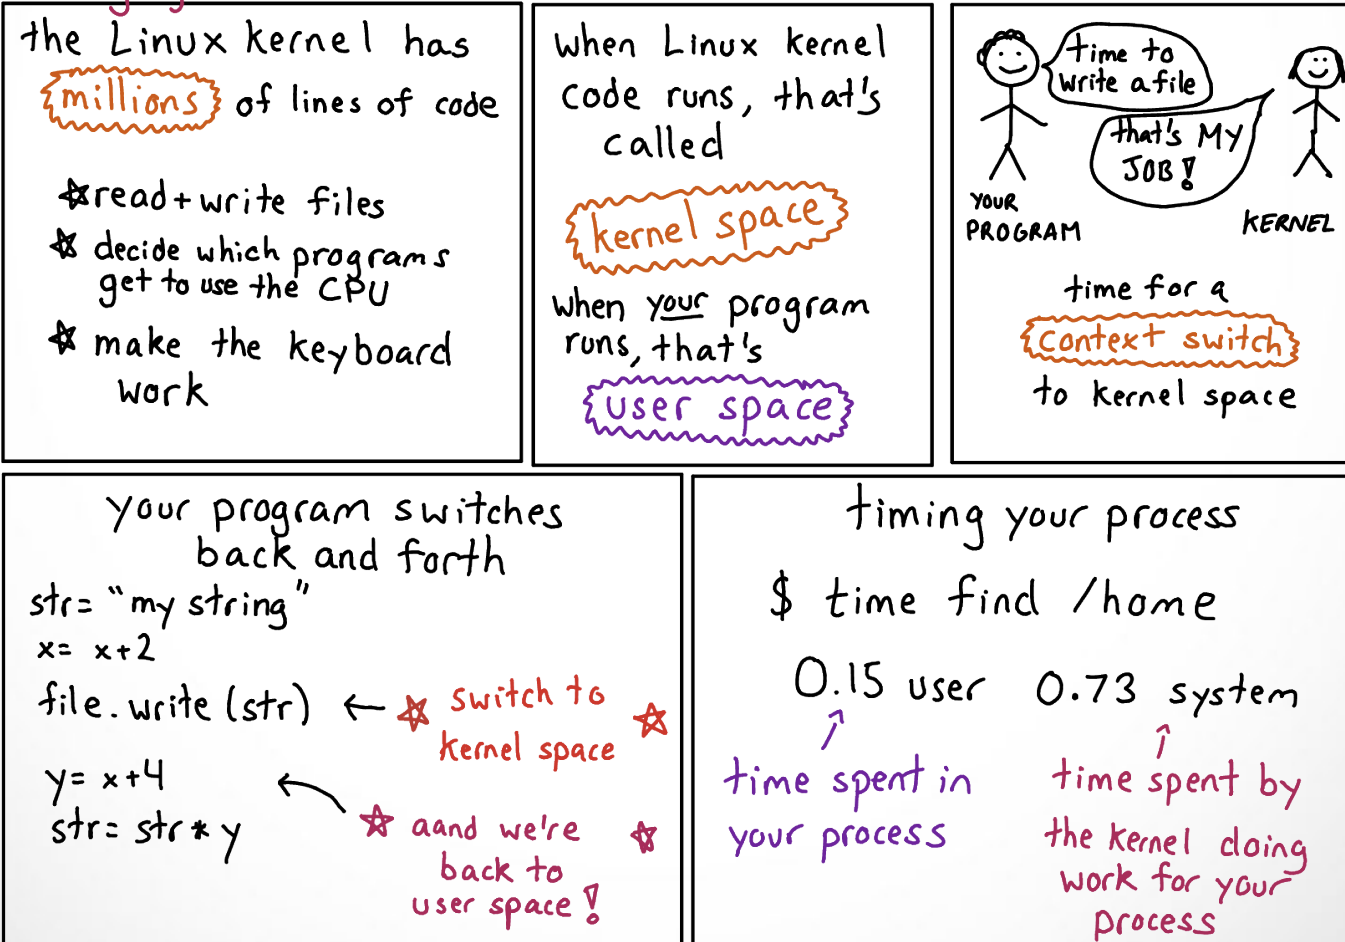 the Linux kernel has
millions of lines of code
☆read+write files
☆ decide which programs
get to use the CPU
☆ make the keyboard
work
when Linux kernel
code runs, that's
called
kernel space
when your program
runs, that's
user space
time to
write a file
that's MY
JOB!
YOUR
PROGRAM
KERNEL
time for a
context switch
to kernel space
your program switches
back and forth
str= "my string"
x= x+2
file.write(str) ← ☆ switch to ☆
kernel space
y= x+4
str= str * y
☆ aand we're ☆
back to
user space!
timing your process
$ time find /home
0.15 user 0.73 system
time spent in
your process
time spent by
the kernel doing
work for your
process